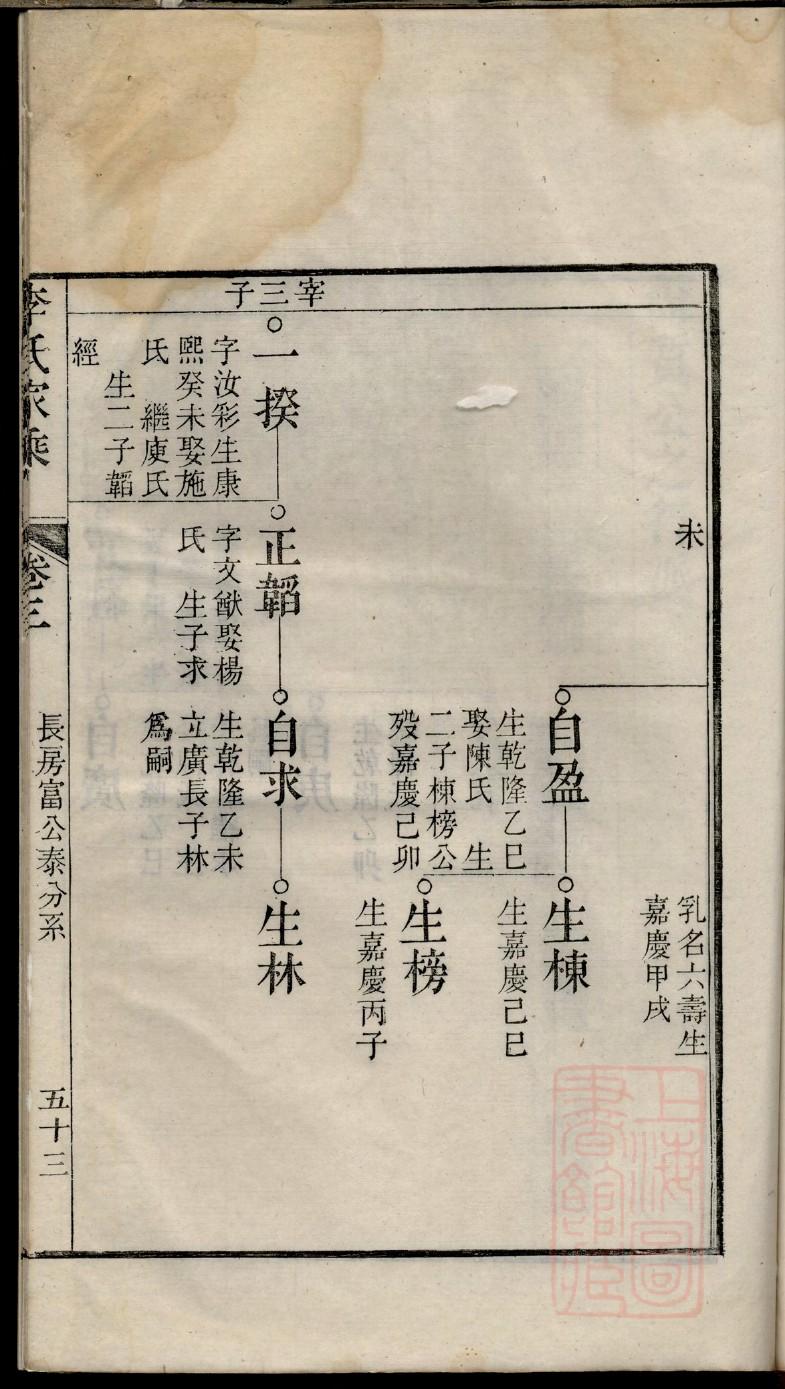 未
乳名六壽生
嘉慶甲戌
自盈
生乾隆乙巳
娶陳氏　生
二子棟榜公
歿嘉慶己卯
生棟
生嘉慶己巳
生榜
生嘉慶丙子
宰三子
一揆
字汝彩生康
熙癸未娶施
氏　繼庾氏
生二子韜
經
正韜
字文猷娶楊
氏　生子求
自求
生乾隆乙未
立廣長子林
爲嗣
生林
李氏家乘
卷三
長房富公泰分系
五十三
上海圖
書館藏